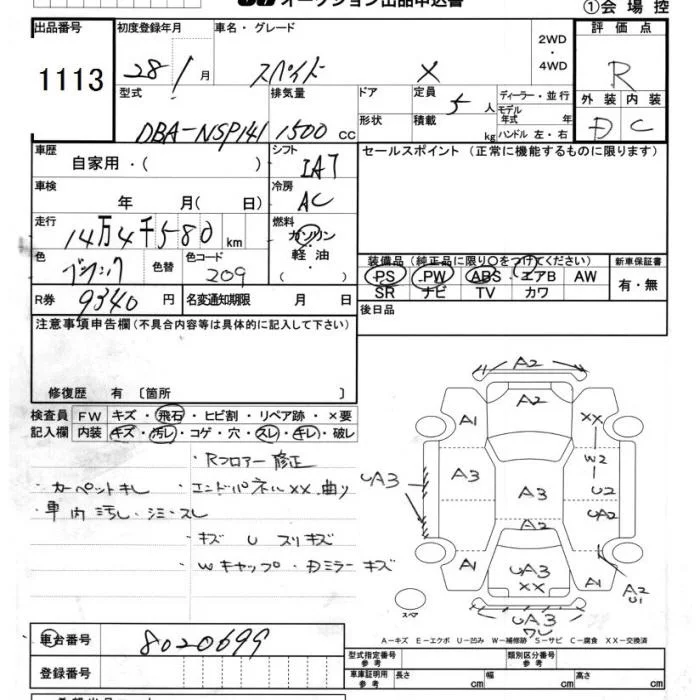 オークション出品申込書
①会場控
出品番号 初度登録年月 車名・グレード 2WD ・ 4WD 評価点
1113 28 / 1 月 スペイド X R
型式 排気量 ドア 定員 5 人 ディーラー・並行 外装 内装
DBA-NSP141 1500 cc 形状 積載 kg モデル年式 年 ハンドル 左・右 D C
車歴 自家用・( ) シフト IAT セールスポイント (正常に機能するものに限ります)
車検 年 月( 日) 冷房 AC
走行 14万4千580 km 燃料 ガソリン・軽油・( )
色 色替 色コード 209
装備品 (純正品に限り○をつけてください) 新車保証書
PS PW ABS エアB AW 有・無
SR ナビ TV カワ
R券 9340 円 名変通知期限 月 日 後日品
注意事項申告欄(不具合内容等は具体的に記入して下さい)
修復歴 有 〔箇所 〕
検査員記入欄 FW キズ・飛石・ヒビ割・リペア跡・×要
内装 キズ・汚レ・コゲ・穴・スレ・キレ・破レ
・Rフロアー修正
・カーペットキレ ・エンドパネルXX、曲り
・車内汚レ・シミ・スレ
・キズ U スリキズ
・Wキャップ・Dミラーキズ
A2
A2
A1 XX
W2
UA3 A3 A3 U2
UA2
A2
A1 UA3 A1 A2
XX U1
UA3
ワレ
スペア
A−キズ E−エクボ U−凹み W−補修跡 S−サビ C−腐食 XX−交換済
車台番号 8020699
型式指定番号 参考 類別区分番号 参考
登録番号 車庫証明用 参考 長さ cm 幅 cm 高さ cm